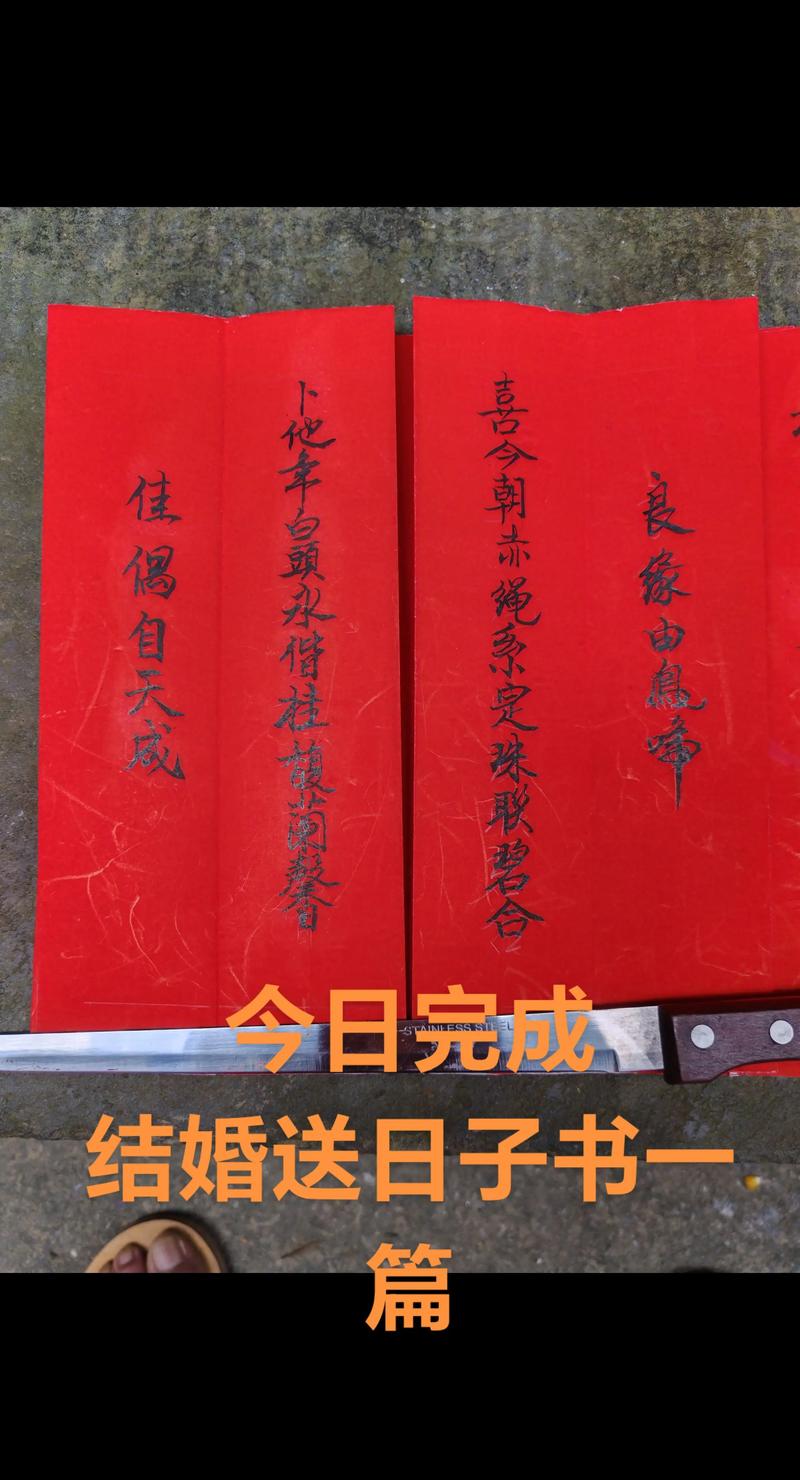 良缘由鳳啼
喜今朝赤绳系定珠联碧合
卜他年白頭永偕桂馥蘭馨
佳偶自天成
STAINLESS STEEL
今日完成
结婚送日子书一
篇